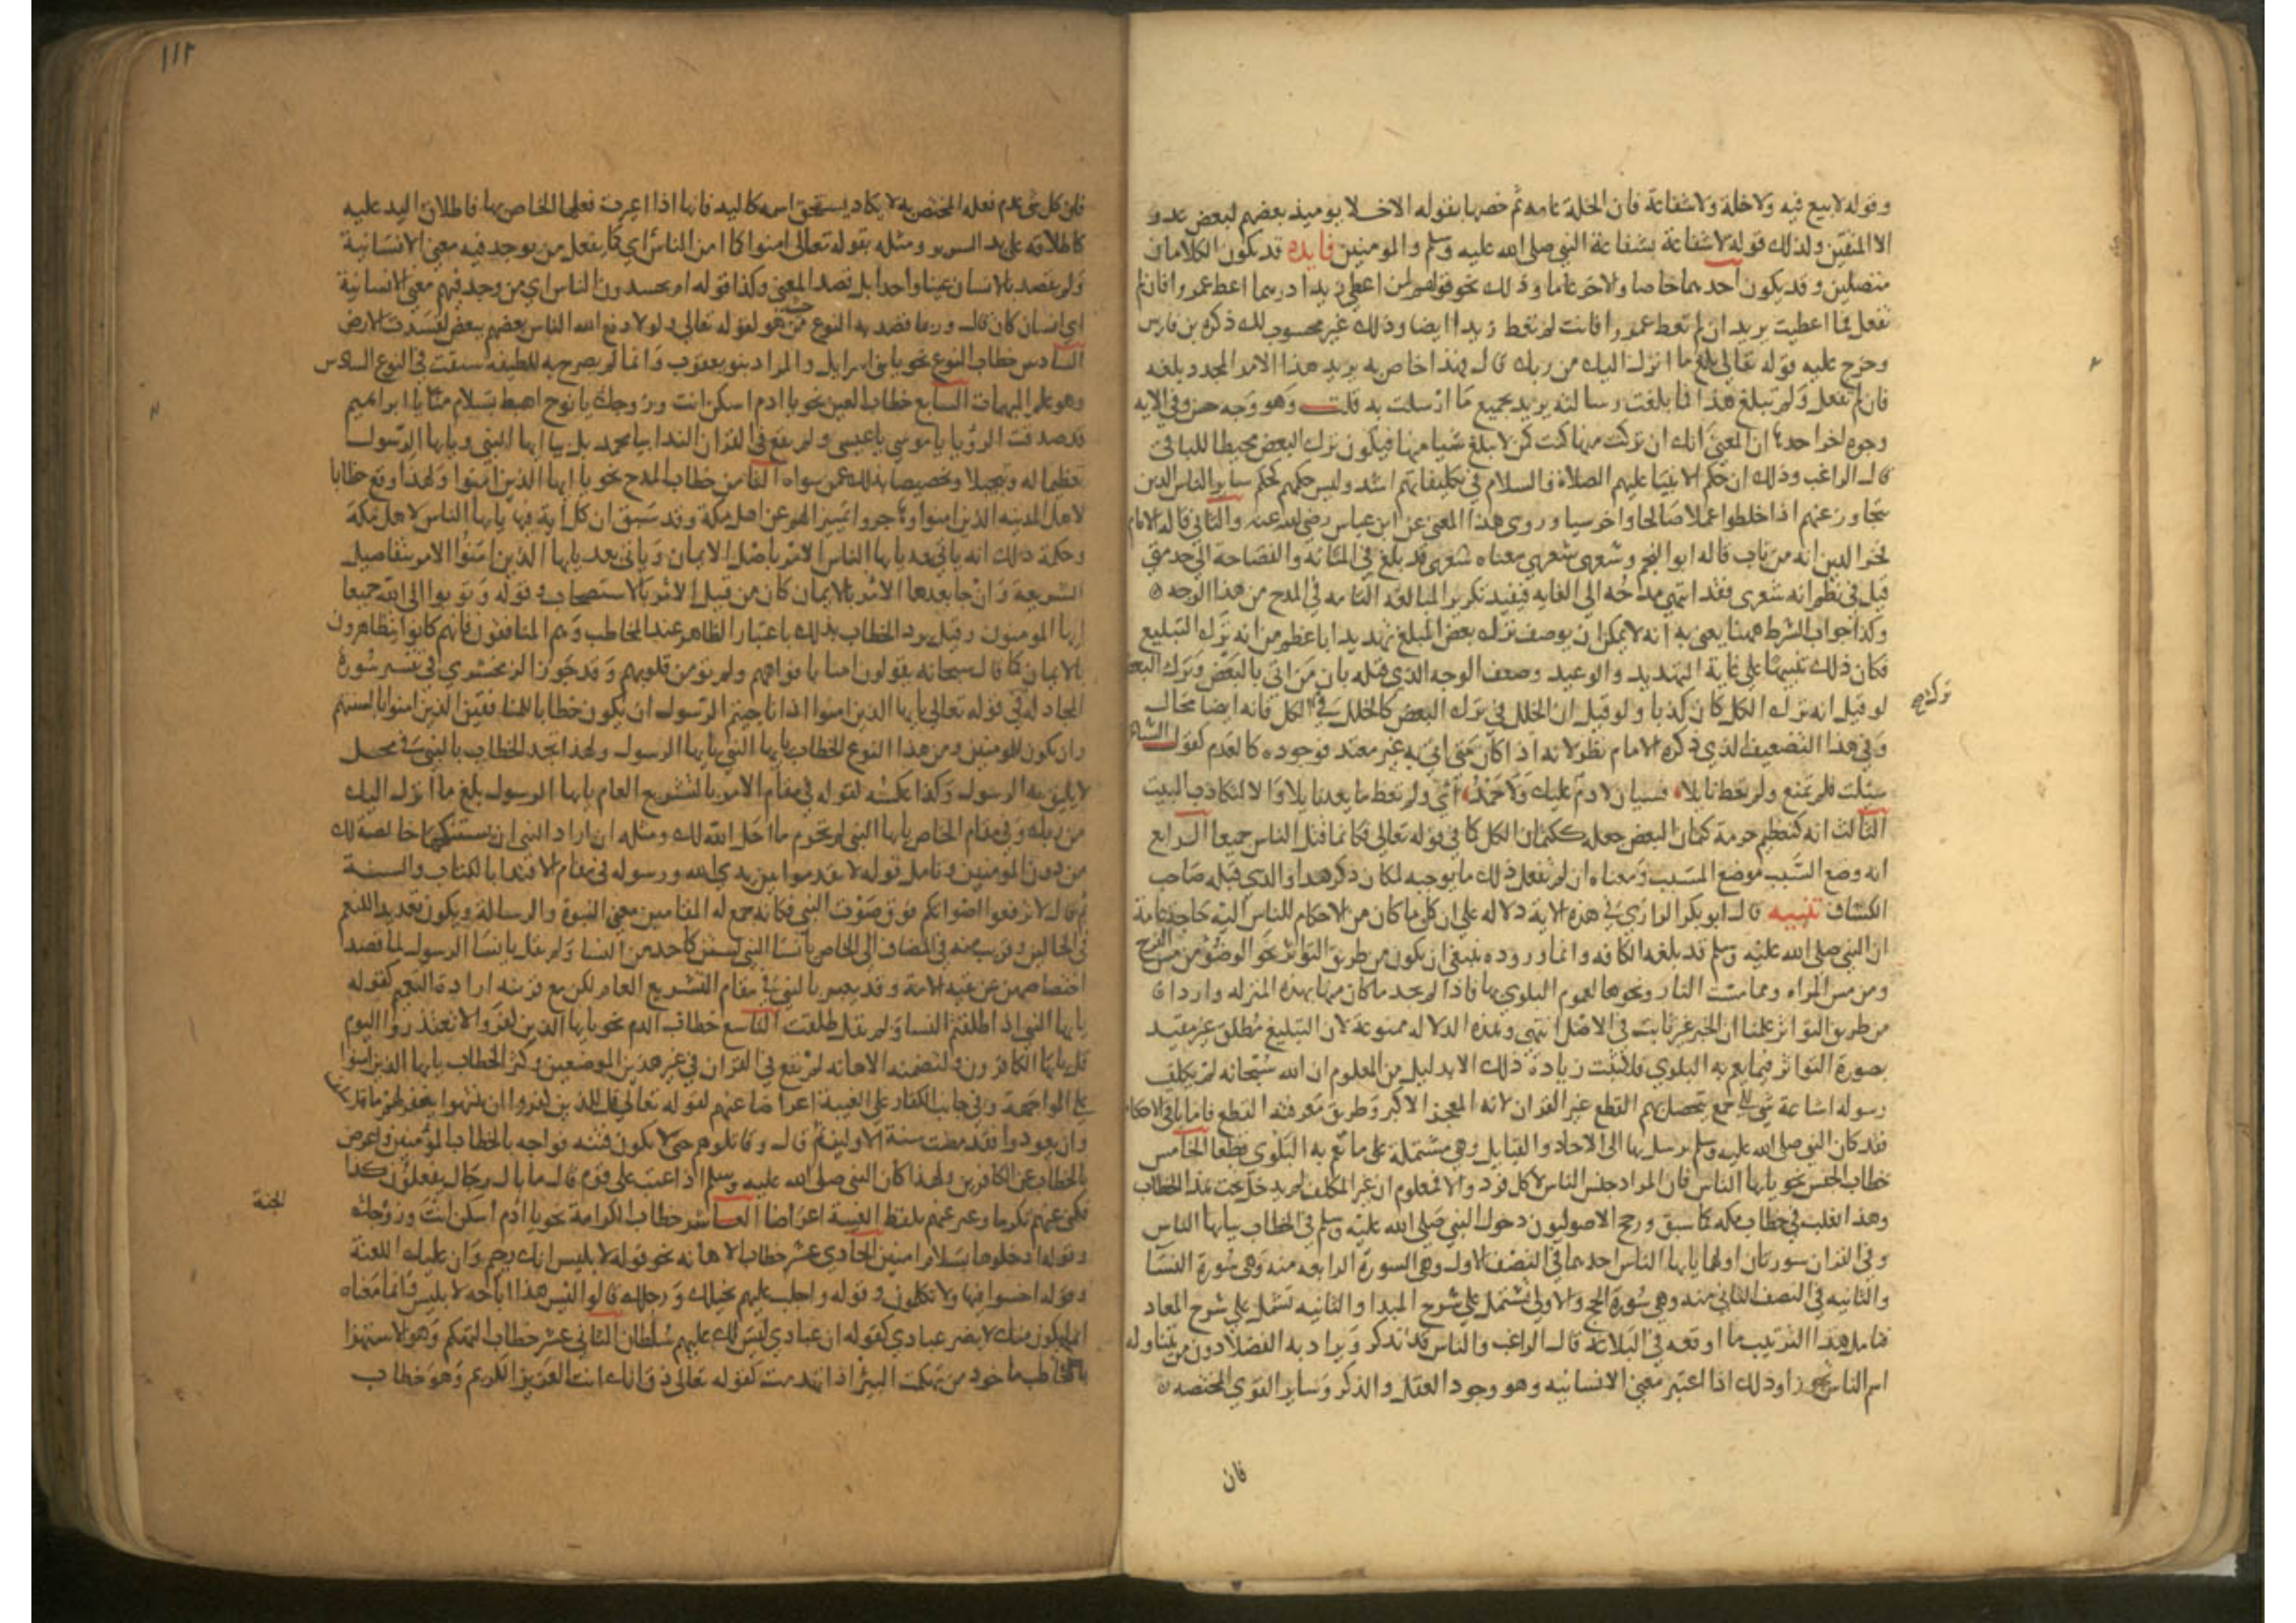 وقوله لا بيع فيه ولا خلة ولا شفاعة فان الخلة عامه ثم خصها بقوله الاخلا يوميذ بعضهم لبعض عدو
الا المتقين ولذلك قوله لا شفاعة بشفاعة النبي صلى الله عليه وسلم والمومنين فايده قد يكون الكلامان
متصلين وقد يكون احدهما خاصا والاخر عاما وذلك نحو قولهم لمن اعطى زيدا درهما اعط عمرا فان لم
تفعل فما اعطيت يريد ان لم تعط عمرا فانت لم تعط زيدا ايضا وذلك غير محسوب لك ذكره بن فارس
وخرج عليه قوله تعالى بلغ ما انزل اليك من ربك قال فهذا خاص به يريد هذا الامر المجدد بلغه
فان لم تفعل ولم تبلغ هذا فما بلغت رسالته يريد جميع ما ارسلت به قلت وهو وجه حسن وفي الايه
وجوه اخر احدها ان المعنى انك ان تركت منها شيا كنت كمن لا يبلغ شيا منها فيكون ترك البعض محبطا للباقي
قال الراغب وذلك ان حكم الانبيا عليهم الصلاة والسلام في تكليفاتهم اشد وليس حكمهم كحكم ساير الناس الذين
يتجاوز عنهم اذا خلطوا عملا صالحا واخر سيا وروى هذا المعنى عن ابن عباس رضي الله عنه والثاني قاله الامام
فخر الدين انه من باب قاله ابو النجم وشعري شعري معناه شعري قد بلغ في المتانة والفصاحة الى حد متى
قيل في نظم انه شعري فقد انتهى مدحه الى الغايه فيفيد تكرير المبالغه التامه في المدح من هذا الوجه
وكذا جواب الشرط ههنا يعني به انه لا يمكن ان يوصف ترك بعض المبلغ تهديدا باعظم من انه ترك التبليغ
فكان ذلك تنبيها على غاية التهديد والوعيد وضعف الوجه الذي قبله بان من اتى بالبعض وترك البعض
لو قيل انه ترك الكل كان كذبا ولو قيل ان الخلل في ترك البعض كالخلل في ترك الكل فانه ايضا محال
وفي هذا التضعيف الذي ذكره الامام نظر لانه اذا كان متى اتى به غير معتد فوجوده كالعدم كقول الشاعر
سئلت فلم تمنع ولم تعط نايلا فسيان لا ذم عليك ولا حمد اي ولم تعط ما يعد نايلا والا لتكاذب البيت
الثالث انه لتعظيم حرمة كتمان البعض جعله ككتمان الكل كما في قوله تعالى فكانما قتل الناس جميعا الرابع
انه وضع السبب موضع المسبب ومعناه ان لم تفعل ذلك فلك ما يوجبه لكمان ذكر هذا والذي قبله صاحب
الكشاف تنبيه قال ابو بكر الرازي في هذه الاية دلاله على ان كل ما كان من الاحكام للناس اليه حاجة عامة
ان النبي صلى الله عليه وسلم قد بلغه الكافه وانما وروده ينبغي ان يكون من طريق التواتر نحو الوضو من مس الفرج
ومن مس المراه ومما مست النار ونحوها لعموم البلوي بها فاذا لم نجد ما كان منها بهذه المنزله واردا
من طريق التواتر علمنا ان الخبر غير ثابت في الاصل انتهى وهذه الدلاله ممنوعة لان التبليغ مطلق غير مقيد
بصورة التواتر فيما يعم به البلوي فلا تثبت زيادة ذلك الا بدليل من المعلوم ان الله سبحانه لم يكلف
رسوله اشاعة شي الى جمع يتحصل بهم القطع غير القران لانه المعجز الاكبر وطريق معرفته القطع فاما باقي الاحكام
فقد كان النبي صلى الله عليه وسلم يرسل بها الى الاحاد والقبايل وهي مشتملة على ما تعم به البلوي قطعا الخامس
خطاب الجنس نحو يايها الناس فان المراد جنس الناس لا كل فرد والا فمعلوم ان غير المكلف لم يدخل تحت هذا الخطاب
وهذا يغلب في خطاب مكه كما سبق ورجح الاصوليون دخول النبي صلى الله عليه وسلم في الخطاب بيايها الناس
وفي القران سورتان اولهما يايها الناس احدهما في النصف الاول وهي السورة الرابعه منه وهي سورة النسا
والثانيه في النصف الثاني منه وهي سورة الحج والاولى تشتمل على شرح المبدا والثانيه تشمل على شرح المعاد
فتامل هذا الترتيب ما اوقعه في البلاغه قال الراغب والناس قد تذكر ويراد به الفضلا دون من يتناوله
اسم الناس تجوزا وذلك اذا اعتبر معنى الانسانيه وهو وجود العقل والذكر وساير القوي المختصه
ترك صح
فان
١١٢
فان كل شي عدم فعله المختص به لا يكاد يستحق اسمه كاليد فانها اذا عرفت فعلها الخاص بها فاطلاق اليد عليه
كاطلاقه على يد السرير ومثله بقوله تعالى امنوا كما امن الناس اي كما يفعل من يوجد فيه معنى الانسانية
ولم يقصد بالانسان عينا واحدا بل قصد المعنى وكذا قوله ام يحسدون الناس اي من وجد فيهم معنى الانسانية
اي انسان كان قال وربما قصد به النوع من حيث هو لقوله تعالى ولولا دفع الله الناس بعضهم ببعض لفسدت الارض
السادس خطاب النوع نحو يا بني اسرايل والمراد بنو يعقوب وانما لم يصرح به للطيفة سبقت في النوع السادس
وهو علم المبهمات السابع خطاب العين نحو يا ادم اسكن انت وزوجك يا نوح اهبط بسلام منا يا ابراهيم
قد صدقت الرؤيا يا موسى يا عيسى ولم يقع في القران الندا بيا محمد بل بيا ايها النبي ويايها الرسول
تعظيما له وتبجيلا وتخصيصا بذلك عمن سواه الثامن خطاب المدح نحو يا ايها الذين امنوا ولهذا وقع خطابا
لاهل المدينه الذين امنوا وهاجروا تمييزا لهم عن اهل مكة وقد سبق ان كل اية فيها يايها الناس لاهل مكة
وحكمة ذلك انه ياتي بعد يايها الناس الامر باصل الايمان وياتي بعد يايها الذين امنوا الامر بتفاصيل
الشريعة وان جا بعدها الامر بالايمان كان من قبيل الامر بالاستصحاب وقوله وتوبوا الى الله جميعا
ايها المومنون وقيل يرد الخطاب بذلك باعتبار الظاهر عند المخاطب وهم المنافقون فانهم كانوا يتظاهرون
بالايمان كما قال سبحانه يقولون امنا بافواههم ولم تومن قلوبهم وقد جوز الزمخشري في تفسير سورة
المجادلة في قوله تعالى يايها الذين امنوا اذا ناجيتم الرسول ان يكون خطابا للمنافقين الذين امنوا بالسنتهم
وان يكون للمومنين ومن هذا النوع الخطاب بيايها النبي يايها الرسول ولهذا تجد الخطاب بالنبي في محل
لا يليق به الرسول وكذا عكسه لقوله في مقام الامر بالتشريع العام يايها الرسول بلغ ما انزل اليك
من ربك وفي مقام الخاص يايها النبي لم تحرم ما احل الله لك ومثله ان اراد النبي ان يستنكحها خالصة لك
من دون المومنين وتامل قوله لا تقدموا بين يدي الله ورسوله في مقام الاقتدا بالكتاب والسنة
ثم قال لا ترفعوا اصواتكم فوق صوت النبي فكانه جمع له المقامين معنى النبوة والرسالة ويكون تعديدا للنعم
في الحالين وقريب منه في المضاف الى الخاص يا نسا النبي لستن كاحد من النسا ولم يقل يا نسا الرسول لما قصد
اختصاصهن عن بقية الامة وقد يعبر بالنبي في مقام التشريع العام لكن مع قرينه ارادة التعميم كقوله
يايها النبي اذا طلقتم النسا ولم يقل طلقت التاسع خطاب الذم نحو يايها الذين كفروا لا تعتذروا اليوم
قل يايها الكافرون ولتضمنه الاهانه لم يقع في القران في غير هذين الموضعين وكثر الخطاب يايها الذين امنوا
على المواجهة وفي جانب الكفار على الغيبة اعراضا عنهم لقوله تعالى قل للذين كفروا ان ينتهوا يغفر لهم ما قد سلف
وان يعودوا فقد مضت سنة الاولين ثم قال وقاتلوهم حتى لا يكون فتنه فواجه بالخطاب المؤمنين واعرض
بالخطاب عن الكافرين ولهذا كان النبي صلى الله عليه وسلم اذا عتب على قوم قال ما بال رجال يفعلون كذا
فكنى عنهم تكرما وعبر عنهم بلفظ الغيبة اعراضا العاشر خطاب الكرامة نحو يا ادم اسكن انت وزوجك
الجنة
وقوله ادخلوها بسلام امنين الحادي عشر خطاب الاهانه نحو قوله لابليس انك رجيم وان عليك اللعنة
وقوله اخسوا فيها ولا تكلمون وقوله واجلب عليهم بخيلك ورجلك قالوا ليس هذا اباحه لابليس فانما معناه
انما يكون منك لا يضر عبادي كقوله ان عبادي ليس لك عليهم سلطان الثاني عشر خطاب التهكم وهو الاستهزا
بالمخاطب ماخوذ من تهكمت البئر اذا تهدمت كقوله تعالى ذق انك انت العزيز الكريم وهو خطاب